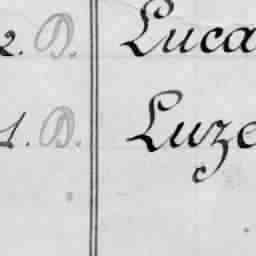 2. D. Luca
1. D. Luze